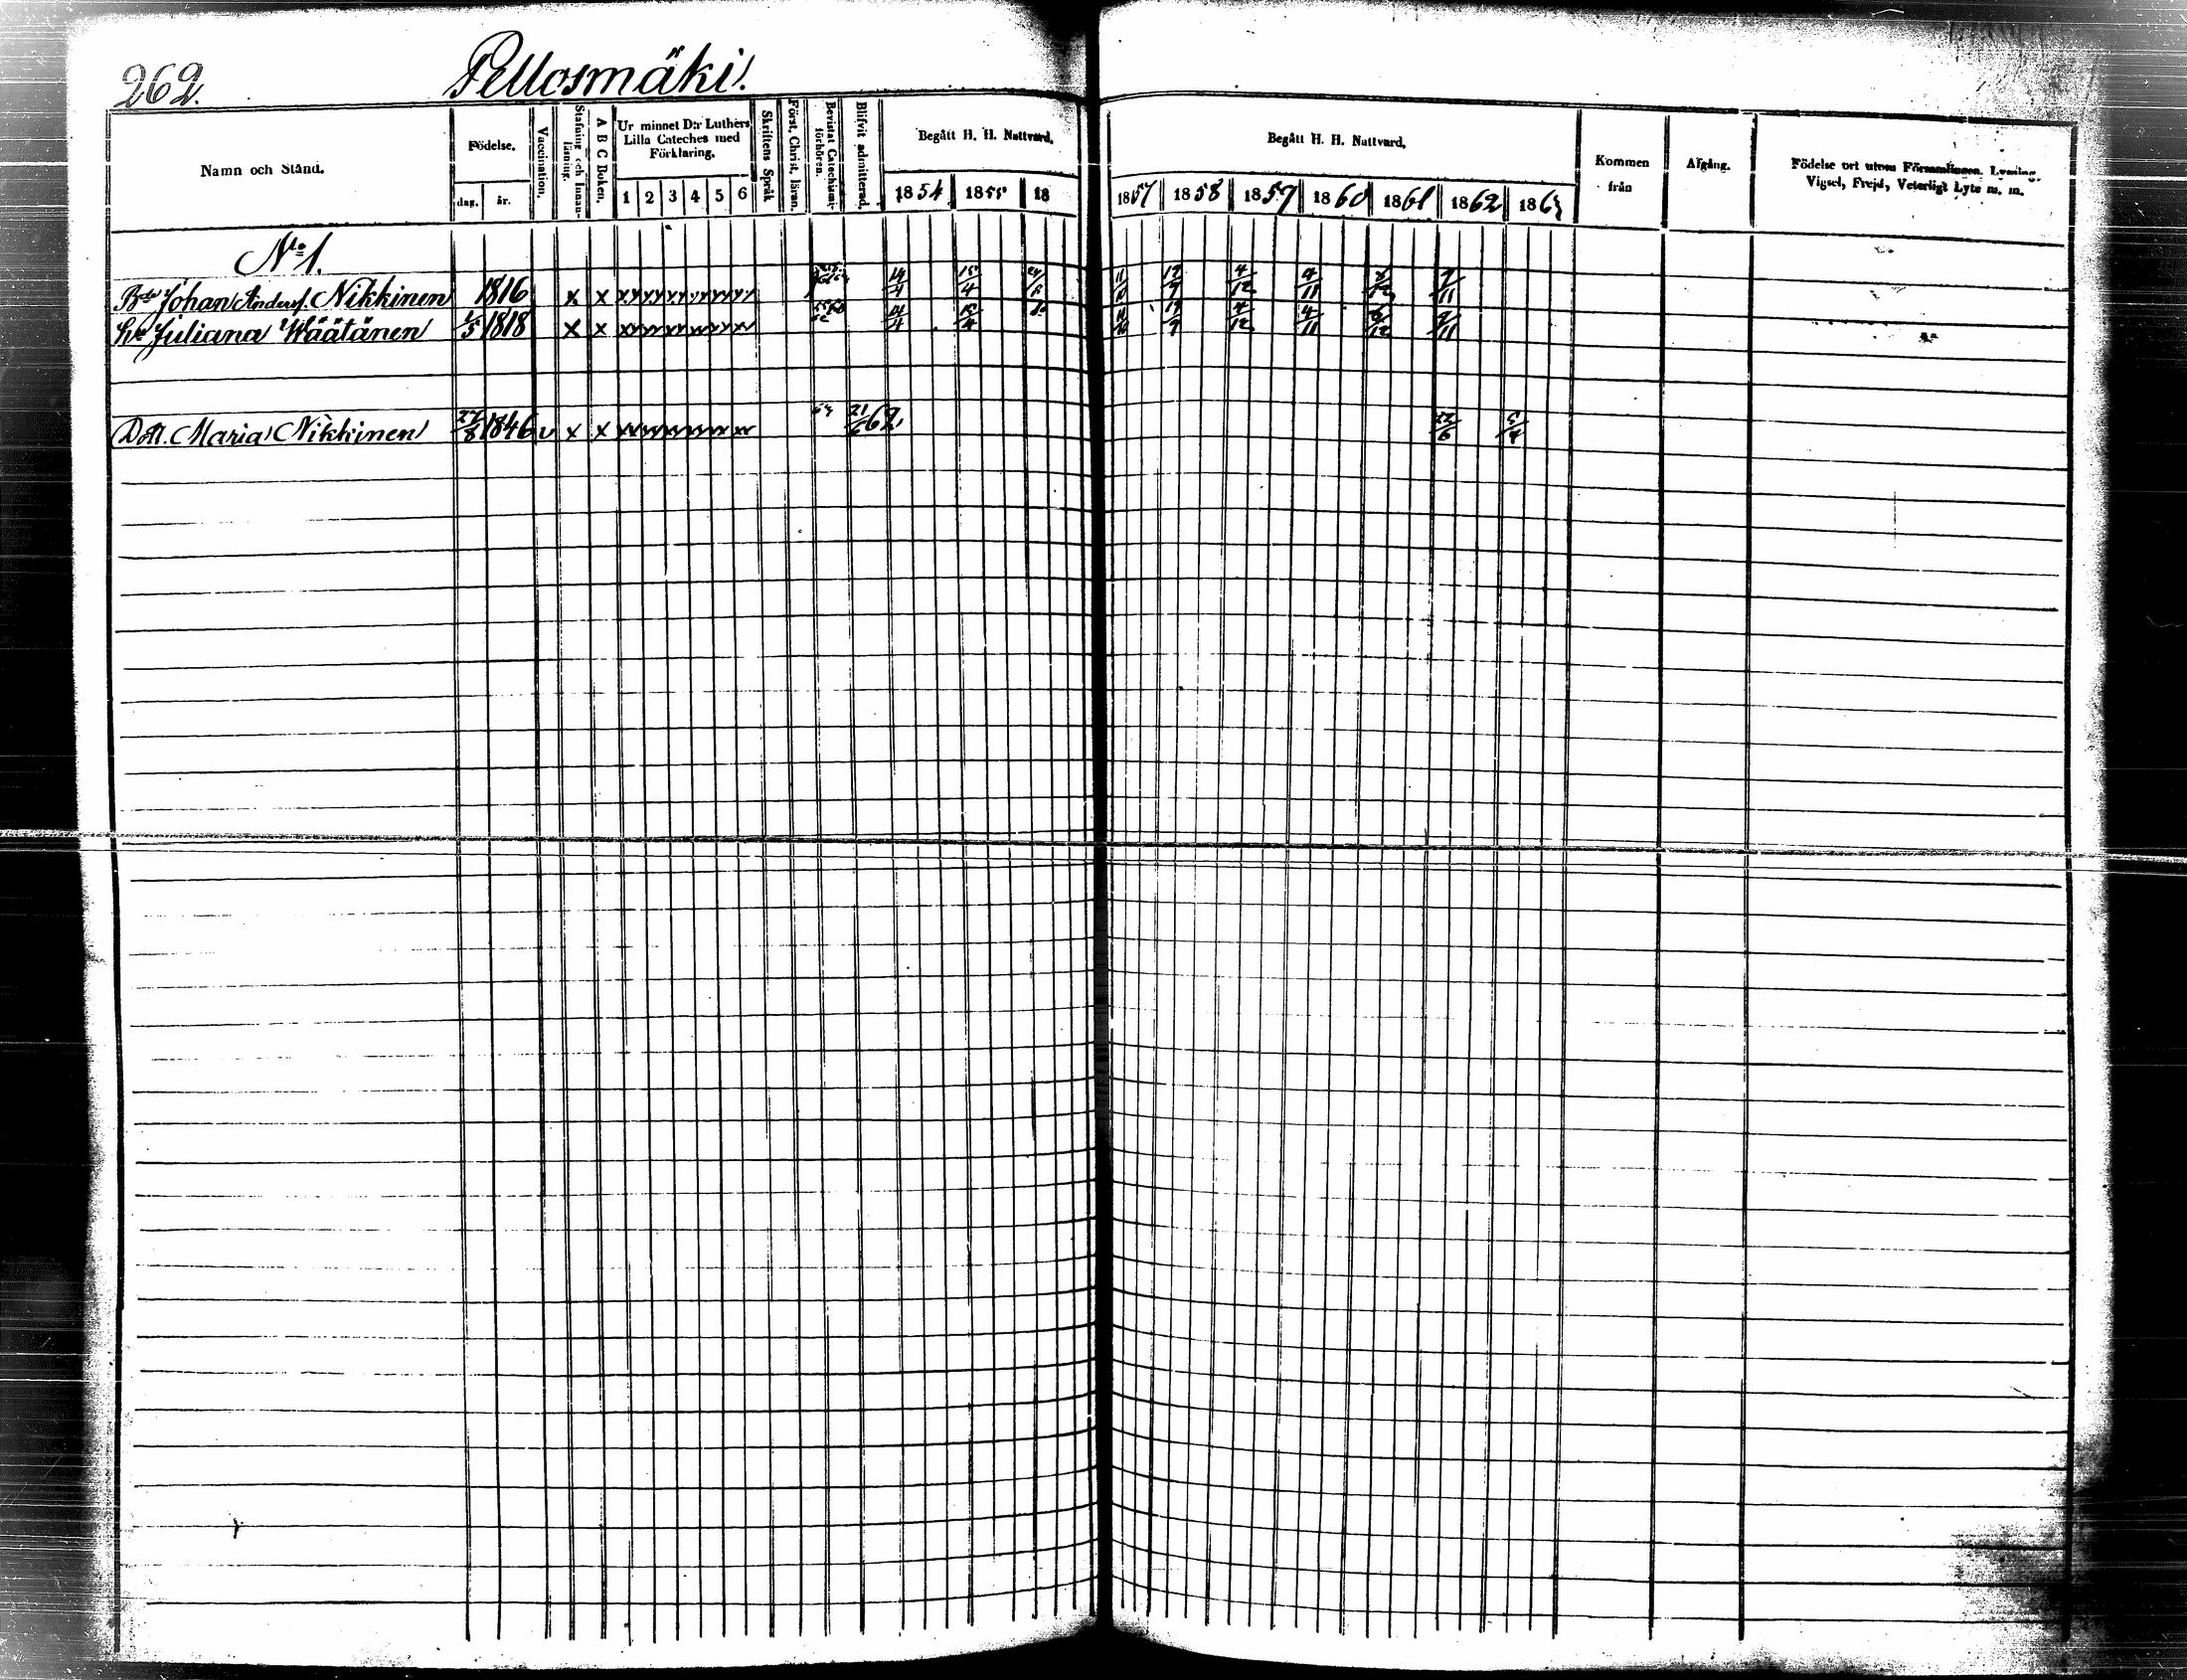 262.
Pellosmäki.
Namn och Stånd.
Födelse.
dag.
år.
Vaccination.
Stafning och Innanläsning.
A B C Boken.
Ur minnet D:r Luthers Lilla Cateches med Förklaring.
1 2 3 4 5 6
Skriftens Språk
Först. Christ. läran.
Bevistat Catechismiförhören.
Blifvit admitterad.
Begått H. H. Nattvard.
1854 1855 18
Begått H. H. Nattvard.
1857 1858 1859 1860 1861 1862 1863
Kommen från
Afgång.
Födelse ort utom Församlingen. Lysning. Vigsel, Frejd, Veterligt Lyte m. m.
No 1.
Bde Johan Anders. Nikkinen 1816 x x x x x x x x x x x x x x 14/4 15/4 11/10 19/9 4/12 4/11 8/12 9/11
Hu Juliana Wäätänen 1/5 1818 x x x x x x x x x x x x x x 14/4 15/4 11/10 19/9 4/12 4/11 8/12 9/11
Dott. Maria Nikkinen 27/8 1846 v x x x x x x x x x x x x x x 21/6 62. 22/6 5/4